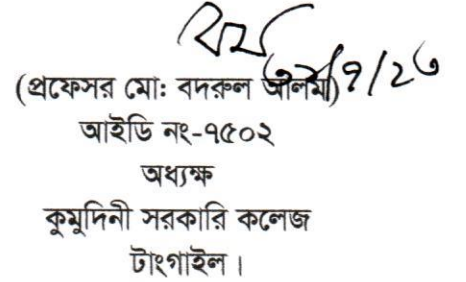 (প্রফেসর মো: বদরুল আলম)
আইডি নং-৭৫০২
অধ্যক্ষ
কুমুদিনী সরকারি কলেজ
টাংগাইল।